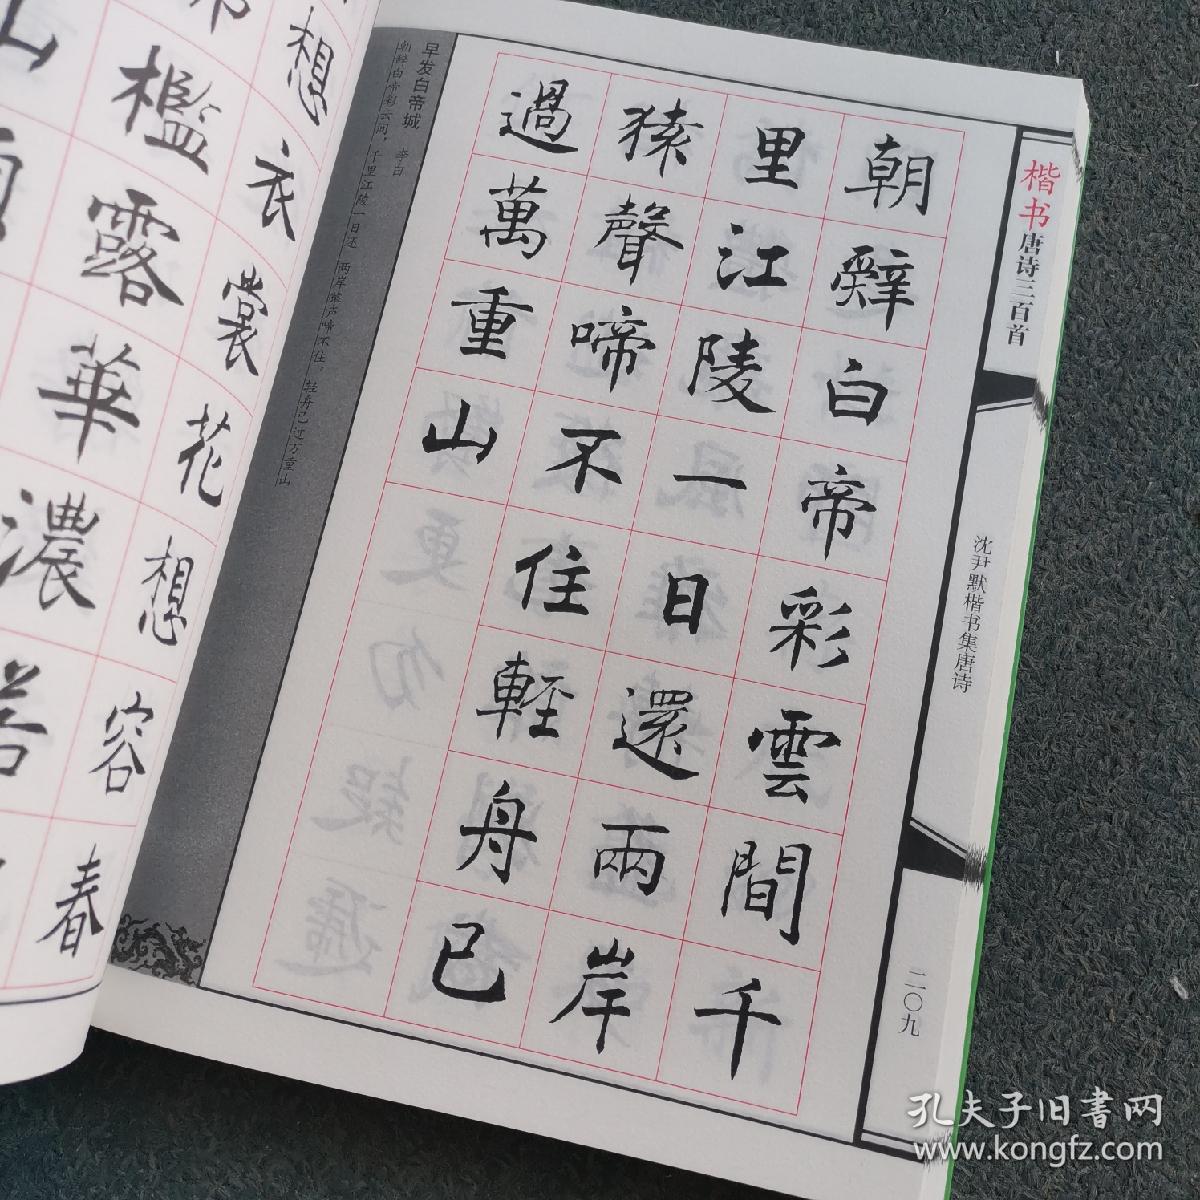 楷书唐诗三百首
沈尹默楷书集唐诗
二〇九
朝辭白帝彩雲間千
里江陵一日還兩岸
猿聲啼不住輕舟已
過萬重山
早发白帝城 李白
朝辞白帝彩云间，千里江陵一日还 两岸猿声啼不住，轻舟已过万重山
想衣裳花想容春
檻露華濃
孔夫子旧書网
www.kongfz.com